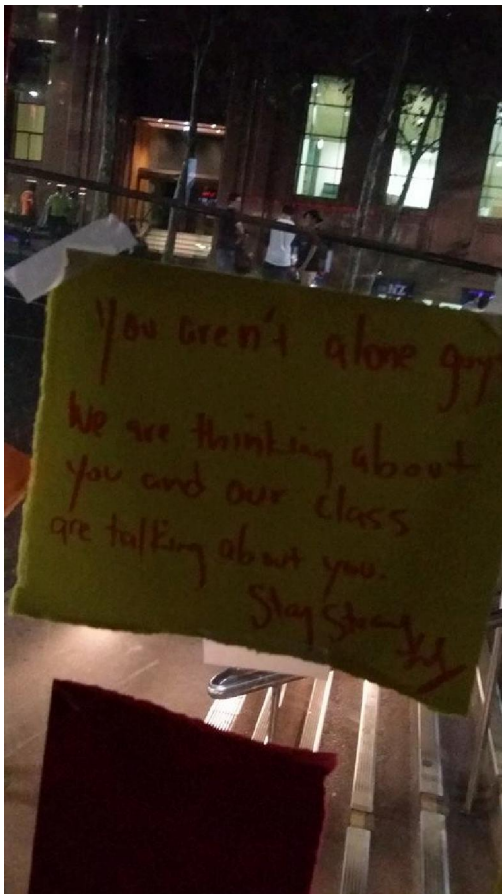 NZ
You aren't alone guys
We are thinking about
you and our class
are talking about you.
Stay Strong